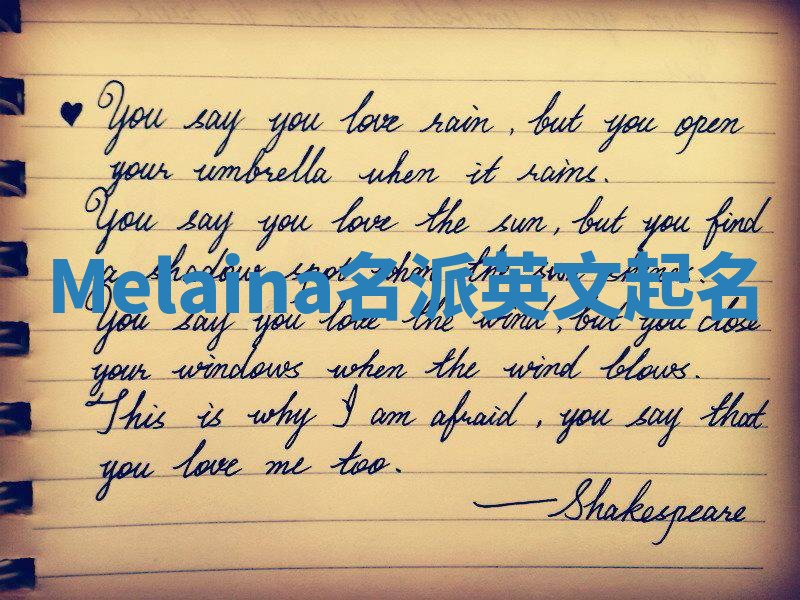 ♥ You say you love rain, but you open
your umbrella when it rains.
You say you love the sun, but you find
a shadow spot when the sun shines.
Melaina名派英文起名
You say you love the wind, but you close
your windows when the wind blows.
This is why I am afraid, you say that
you love me too.
—Shakespeare